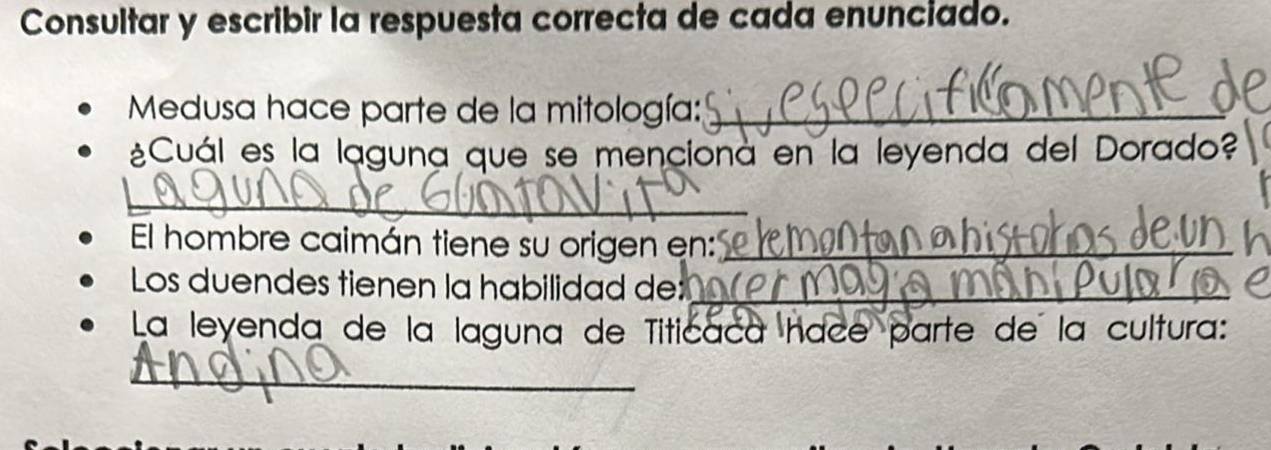 Consultar y escribir la respuesta correcta de cada enunciado.
• Medusa hace parte de la mitología: Si, especificamente de
• ¿Cuál es la laguna que se menciona en la leyenda del Dorado?
Laguna de Guatavita
• El hombre caimán tiene su origen en: se remontan a historias de un h
• Los duendes tienen la habilidad de: hacer magia manipular la e
• La leyenda de la laguna de Titicaca hace parte de la cultura:
Andina